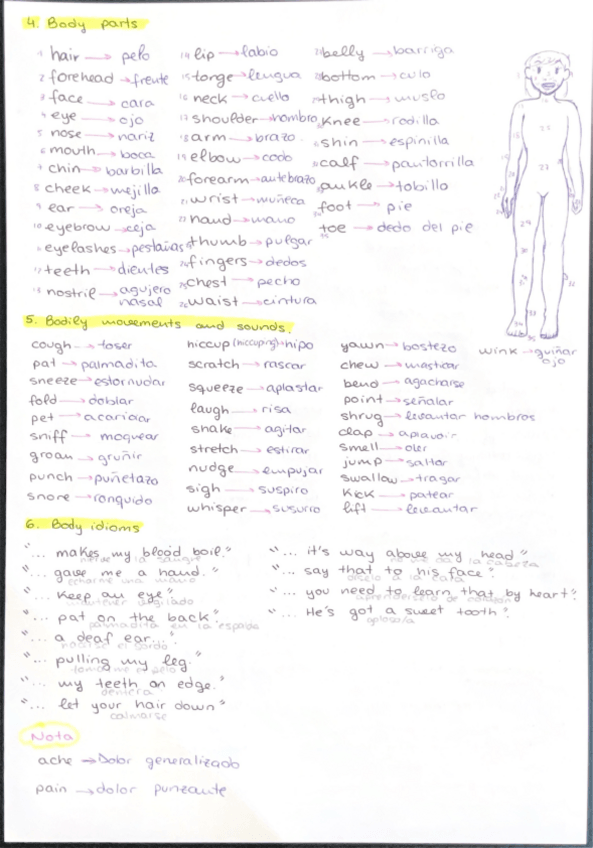 4. Body parts
1 hair → pelo
2 forehead → frente
3 face → cara
4 eye → ojo
5 nose → nariz
6 mouth → boca
7 chin → barbilla
8 cheek → mejilla
9 ear → oreja
10 eyebrow → ceja
eyelashes → pestañas
12 teeth → dientes
13 nostril → agujero nasal
14 lip → labio
15 tonge → lengua
16 neck → cuello
17 shoulder → hombro
18 arm → brazo
19 elbow → codo
20 forearm → antebrazo
21 wrist → muñeca
22 hand → mano
thumb → pulgar
24 fingers → dedos
25 chest → pecho
26 waist → cintura
27 belly → barriga
28 bottom → culo
29 thigh → muslo
knee → rodilla
shin → espinilla
calf → pantorrilla
ankle → tobillo
foot → pie
toe → dedo del pie
5. Bodily movements and sounds.
cough → toser
pat → palmadita
sneeze → estornudar
fold → doblar
pet → acariciar
sniff → moquear
groan → gruñir
punch → puñetazo
snore → ronquido
hiccup (hiccuping) → hipo
scratch → rascar
squeeze → aplastar
laugh → risa
shake → agitar
stretch → estirar
nudge → empujar
sigh → suspiro
whisper → susurro
yawn → bostezo
chew → masticar
bend → agacharse
point → señalar
shrug → levantar hombros
clap → aplaudir
smell → oler
jump → saltar
swallow → tragar
kick → patear
lift → levantar
wink → guiñar ojo
6. Body idioms
"... makes my blood boil."
hierve la sangre
"... gave me a hand."
echarme una mano
"... keep an eye"
vigilado
"... pat on the back."
palmadita en la espalda
"... a deaf ear..."
hacerse el sordo
"... pulling my leg."
tomarme el pelo
"... my teeth on edge."
dentera
"... let your hair down"
calmarse
"... it's way above my head"
"... say that to his face".
díselo a la cara
"... you need to learn that by heart".
aprendértelo de
"... He's got a sweet tooth".
goloso/a
Nota
ache → Dolor generalizado
pain → dolor punzante